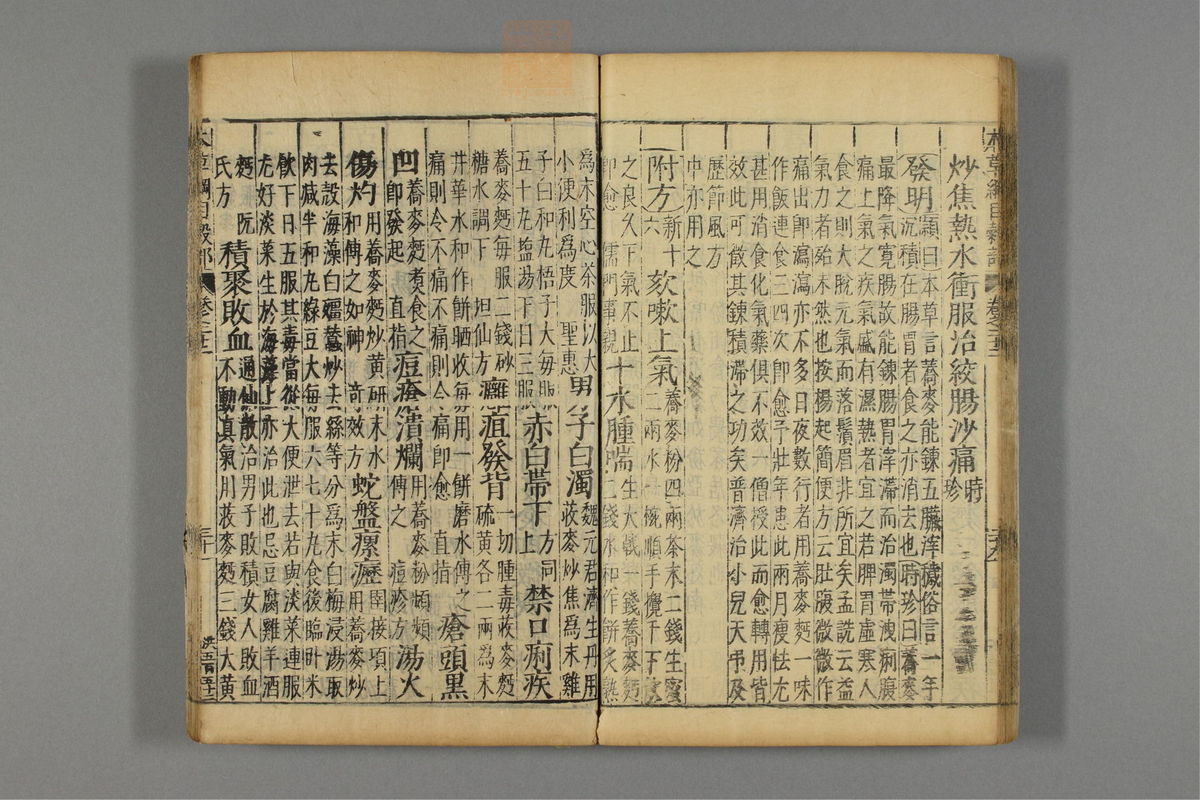 炒焦熱水衝服治絞腸沙痛時珍
發明頴曰本草言蕎麥能鍊五臟滓穢俗言一年
沉積在腸胃者食之亦消去也時珍曰蕎麥
最降氣寛腸故能鍊腸胃滓滯而治濁帶洩痢腹
痛上氣之疾氣盛有濕熱者宜之若脾胃虛寒人
食之則大脫元氣而落鬚眉非所宜矣孟詵云益
氣力者殆未然也按楊起簡便方云肚腹微微作
痛出卽瀉瀉亦不多日夜數行者用蕎麥麪一味
作飯連食三四次卽愈予壯年患此兩月瘦怯尤
甚用消食化氣藥俱不效一僧授此而愈轉用皆
效此可徵其鍊積滯之功矣普濟治小兒天弔及
歷節風方
中亦用之
附方新十六欬嗽上氣蕎麥粉四兩茶末二錢生蜜
二兩水一椀順手攪千下
之良久下氣不止
卽愈 儒門事親
十水腫喘生大戟一錢蕎麥麪
二錢水和作餅炙熟
爲末空心茶服以大
小便利爲度 聖惠
男子白濁魏元君濟生丹用
荍麥炒焦爲末雞
子白和丸梧子大每服
五十丸鹽湯下日三服
赤白帶下方同上禁口痢疾
蕎麥麪每服二錢砂
糖水調下 坦仙方
癰疽發背一切腫毒荍麥麪
硫黄各二兩爲末
井華水和作餅晒收每用一餅磨水傅之
痛則令不痛不痛則令痛卽愈 直指
瘡頭黒
凹蕎麥麪煮食之
卽發起 直指
痘瘡潰爛用蕎麥粉頻頻
傅之 痘疹方
湯火
傷灼用蕎麥麪炒黄研末水
和傅之如神 奇效方
蛇盤瘰癧圍接項上
用蕎麥炒
去殻海藻白殭蠶炒去絲等分爲末白梅浸湯取
肉减半和丸綠豆大每服六七十丸食後臨卧米
飲下日五服其毒當從大便泄去若與淡菜連服
尤好淡菜生於海藻上亦治此也忌豆腐雞羊酒
麪 阮
氏方
積聚敗血通仙散治男子敗積女人敗血
不動真氣用荍麥麪三錢大黄
本草綱目穀部 卷之二十二